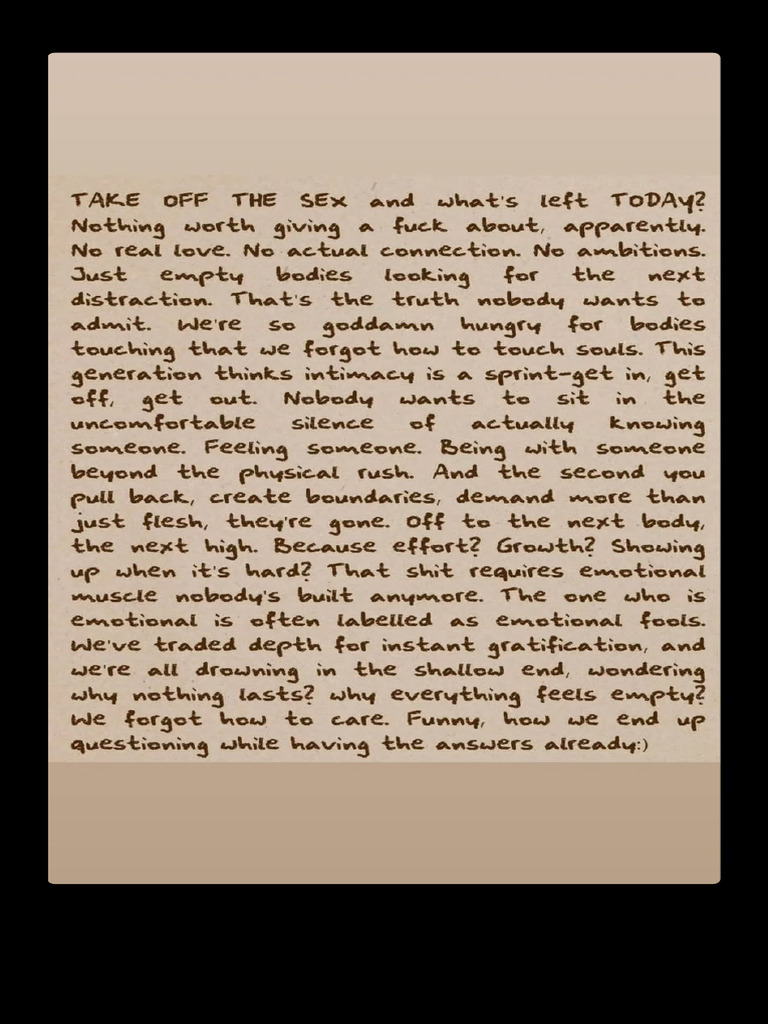 TAKE OFF THE SEX and what's left TODAY?
Nothing worth giving a fuck about, apparently.
No real love. No actual connection. No ambitions.
Just empty bodies looking for the next
distraction. That's the truth nobody wants to
admit. We're so goddamn hungry for bodies
touching that we forgot how to touch souls. This
generation thinks intimacy is a sprint-get in, get
off, get out. Nobody wants to sit in the
uncomfortable silence of actually knowing
someone. Feeling someone. Being with someone
beyond the physical rush. And the second you
pull back, create boundaries, demand more than
just flesh, they're gone. Off to the next body,
the next high. Because effort? Growth? Showing
up when it's hard? That shit requires emotional
muscle nobody's built anymore. The one who is
emotional is often labelled as emotional fools.
We've traded depth for instant gratification, and
we're all drowning in the shallow end, wondering
why nothing lasts? why everything feels empty?
We forgot how to care. Funny, how we end up
questioning while having the answers already:)